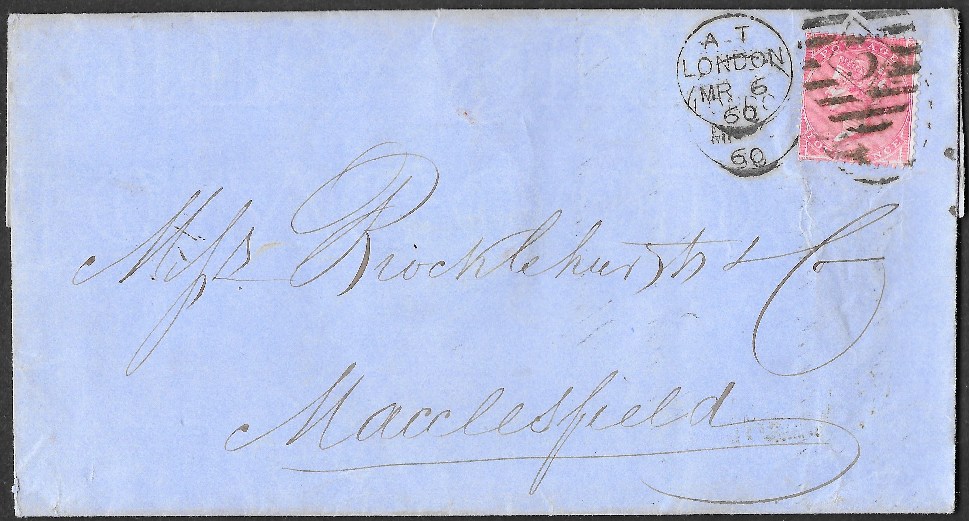 A-T
LONDON
MR 6
60
60
Messrs Brocklehurst & Co
Macclesfield